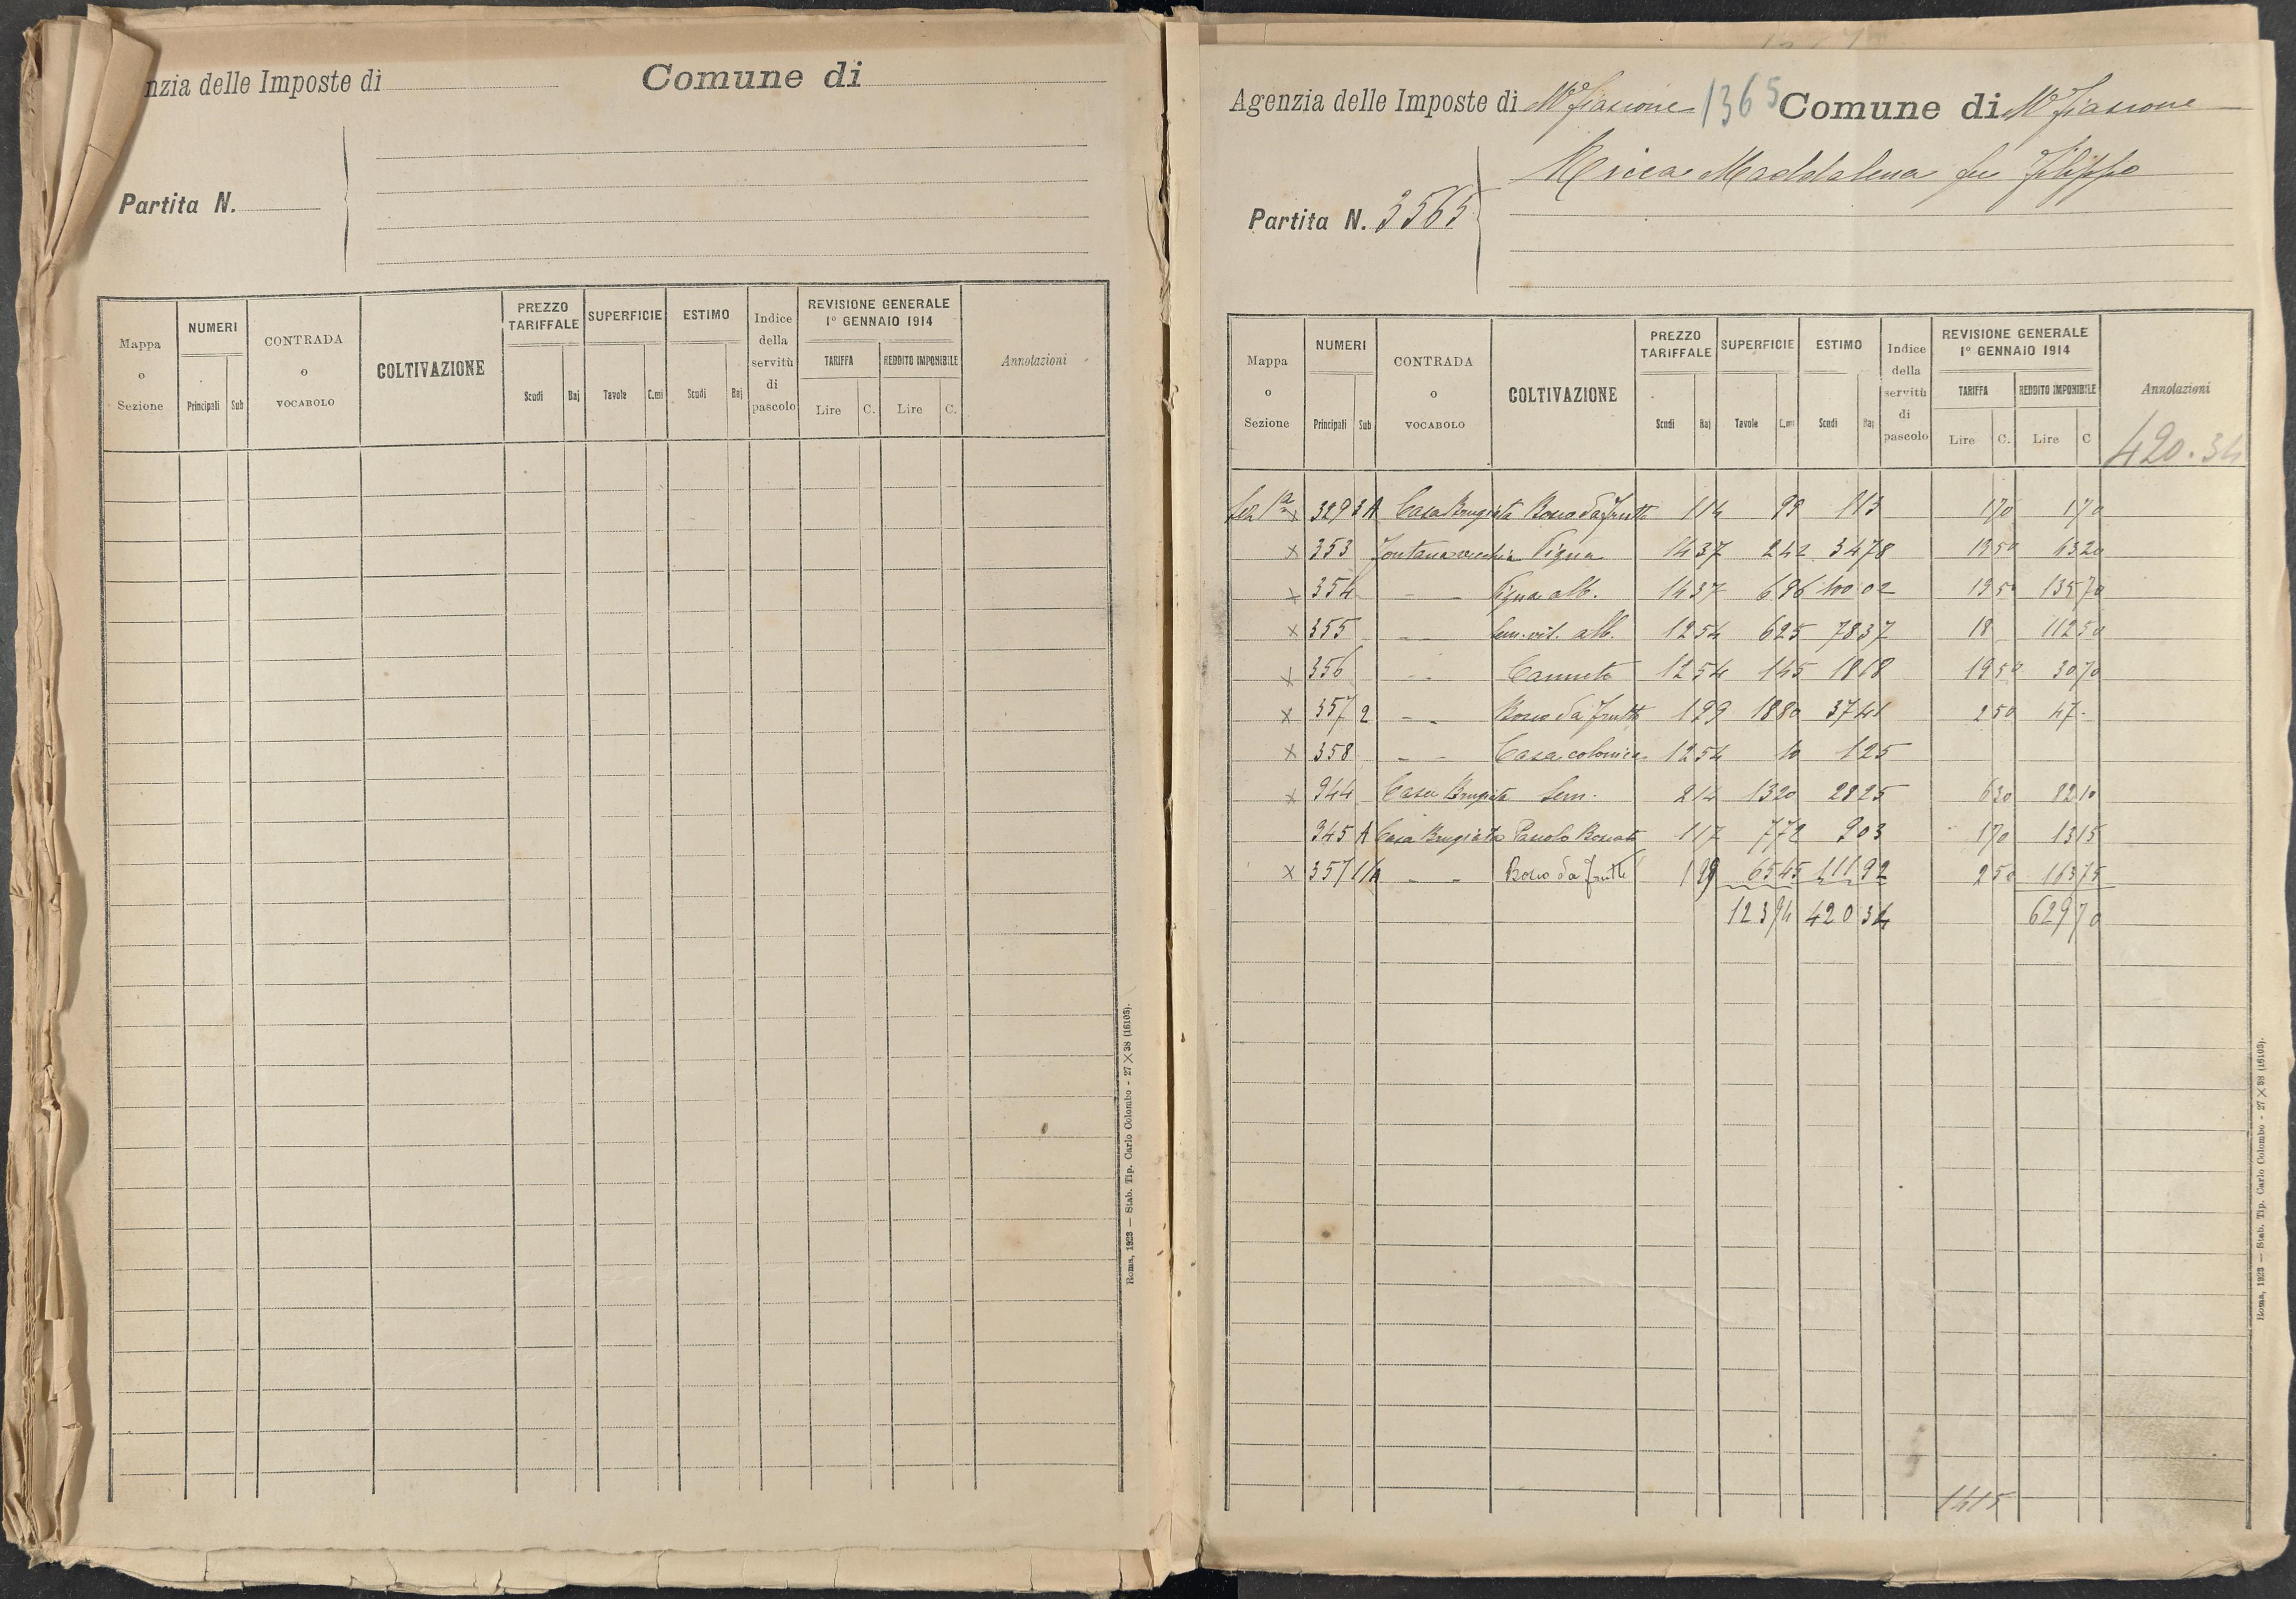 nzia delle Imposte di Comune di
Partita N.
Mappa o Sezione NUMERI Principali Sub CONTRADA o VOCABOLO COLTIVAZIONE PREZZO TARIFFALE Scudi Baj SUPERFICIE Tavole C.mi ESTIMO Scudi Baj Indice della servitù di pascolo REVISIONE GENERALE 1° GENNAIO 1914 TARIFFA Lire C. REDDITO IMPONIBILE Lire C. Annotazioni
Roma, 1923 — Stab. Tip. Carlo Colombo - 27 X 38 (16103).
Agenzia delle Imposte di Mefiascone 1365 Comune di Mefiascone
Ricca Maddalena fu Filippo
Partita N. 3565
Mappa o Sezione NUMERI Principali Sub CONTRADA o VOCABOLO COLTIVAZIONE PREZZO TARIFFALE Scudi Baj SUPERFICIE Tavole C.mi ESTIMO Scudi Baj Indice della servitù di pascolo REVISIONE GENERALE 1° GENNAIO 1914 TARIFFA Lire C. REDDITO IMPONIBILE Lire C Annotazioni
420.34
Sez 1a x 329 3 A Casa Brugiata Bosco da frutto 1 14 99 1 13 1 70 1 70
x 353 Fontana vecchia Vigna 14 37 2 42 34 78 19 50 63 20
x 354 - - Vigna alb. 14 37 6 96 100 02 19 50 135 70
x 355 - - Sem. vit. alb. 12 54 6 25 78 37 18 112 50
x 356 - - Canneto 12 54 1 45 18 18 19 50 30 70
x 357 2 - - Bosco da frutto 1 99 18 80 37 41 2 50 47 -
x 358 - - Casa colonica 12 54 10 1 25
x 944 Casa Brugiata Sem. 2 14 13 20 28 25 6 30 82 10
945 A Casa Brugiata Pascolo Boscato 1 17 7 72 9 03 1 70 13 15
x 357 1/A - - Bosco da frutto 1 99 65 45 111 92 2 50 163 75
123 94 420 34 629 70
1415
Roma, 1923 — Stab. Tip. Carlo Colombo - 27 X 38 (16103).